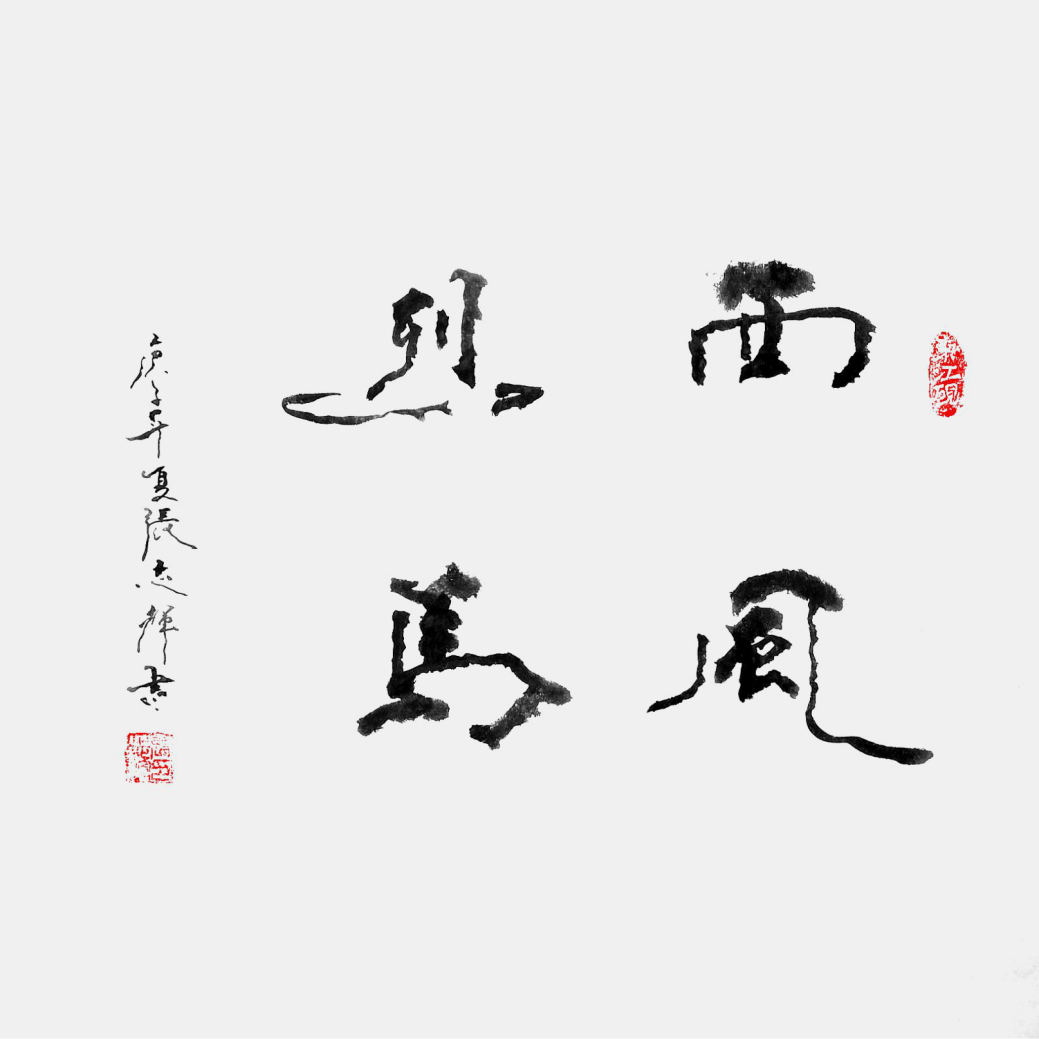 西風
烈馬
庚子年夏張志輝書